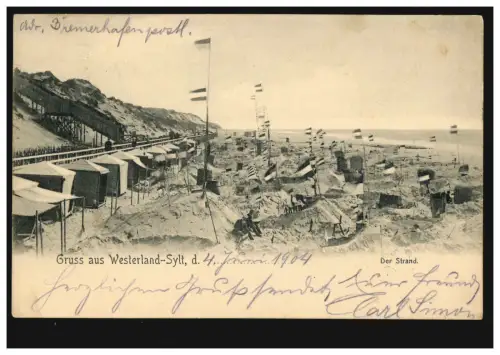 Adr. Bremerhafen postl.
Gruss aus Westerland-Sylt, d. 4. Juni 1904
Der Strand.
Herzlichen Gruß sendet Euer Freund
Carl Simon